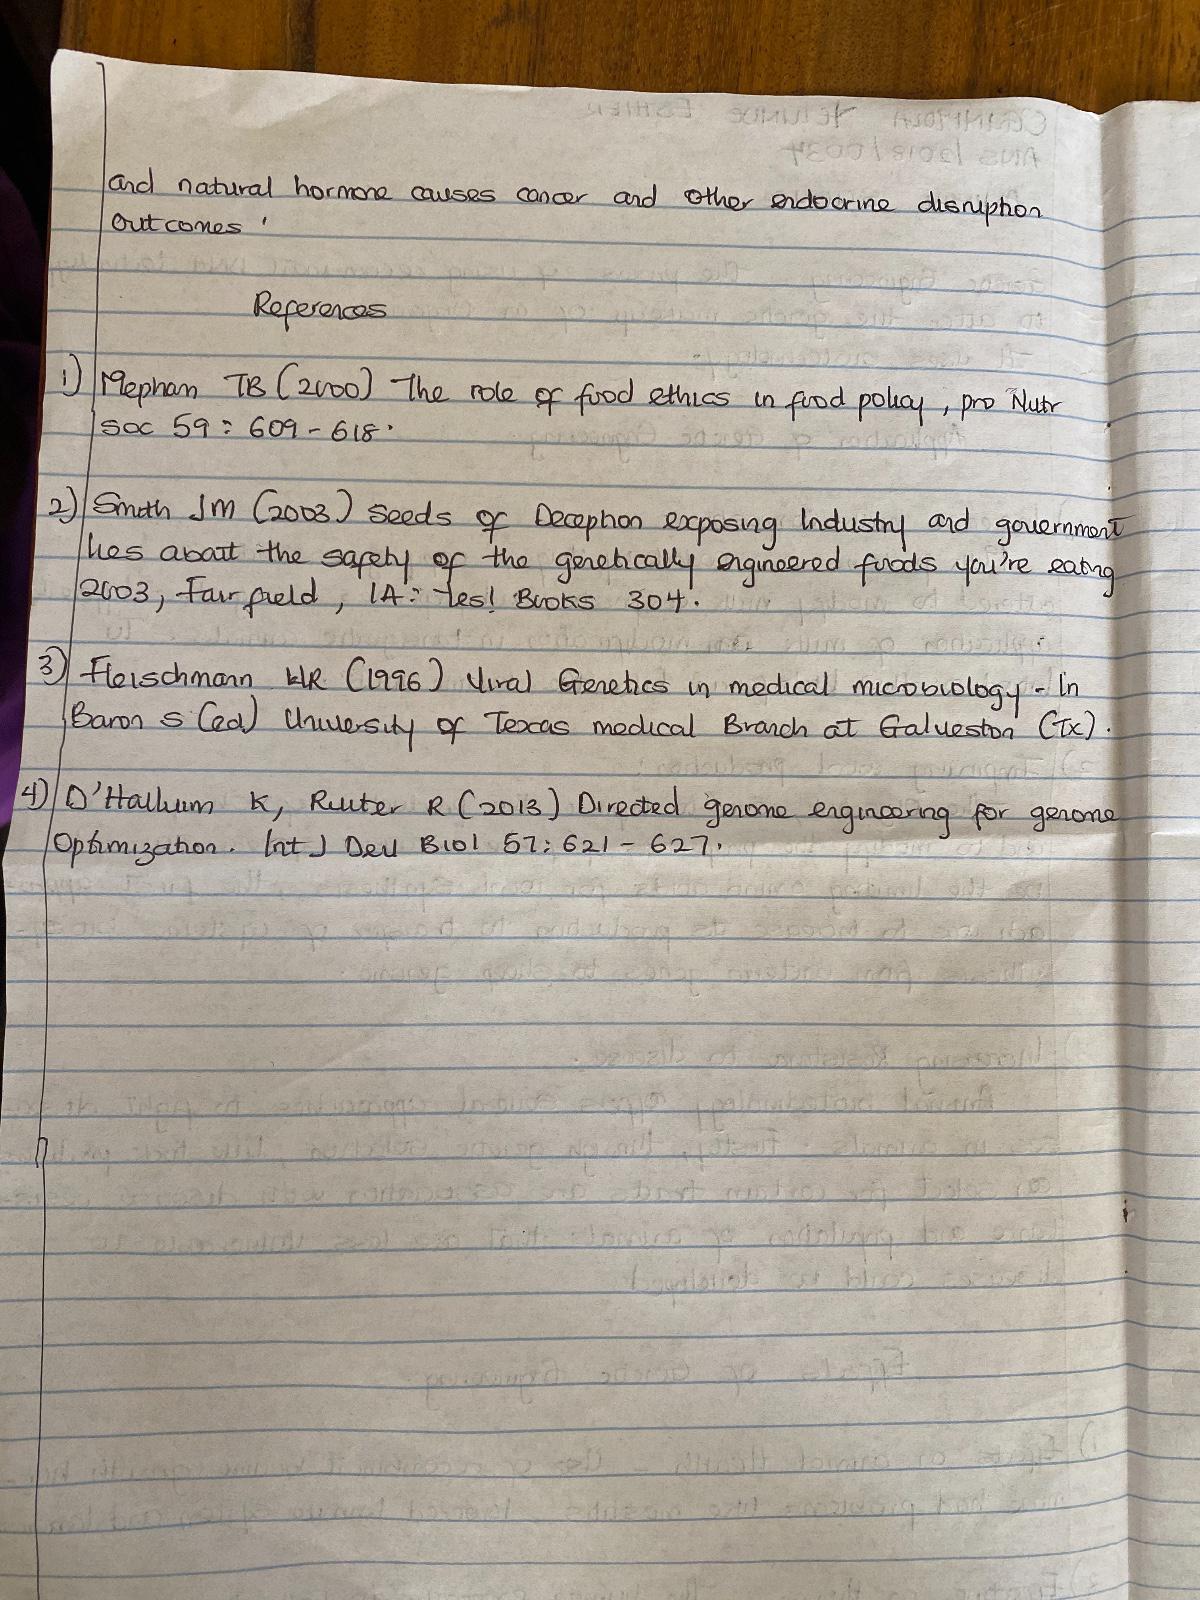 and natural hormone causes cancer and other endocrine disruption
outcomes.
References
1) Mephan TB (2000) The role of food ethics in food policy, pro Nutr
soc 59: 609-618.
2) Smith JM (2003) Seeds of Deception exposing Industry and government
lies about the safety of the genetically engineered foods you're eating
2003, Fairfield, IA: Yes! Books 304.
3) Fleischmann WR (1996) Viral Genetics in medical microbiology - In
Baron S (ed) University of Texas medical Branch at Galveston (Tx).
4) D'Halluin K, Ruiter R (2013) Directed genome engineering for genome
Optimization. Int J Dev Biol 57: 621-627.